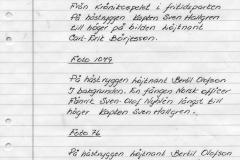 Från Krönikespelet i fritidsparken
På hästryggen Kapten Sven Hallgren
till höger på bilden löjtnant
Carl-Erik Börjesson.
Foto 1049
På hästryggen löjtnant Bertil Olofson
I bakgrunden. En fången Norsk officer
Fänrik Sven-Olof Nyhlén längst till
höger Kapten Sven Hallgren.
Foto 76
På hästryggen löjtnant Bertil